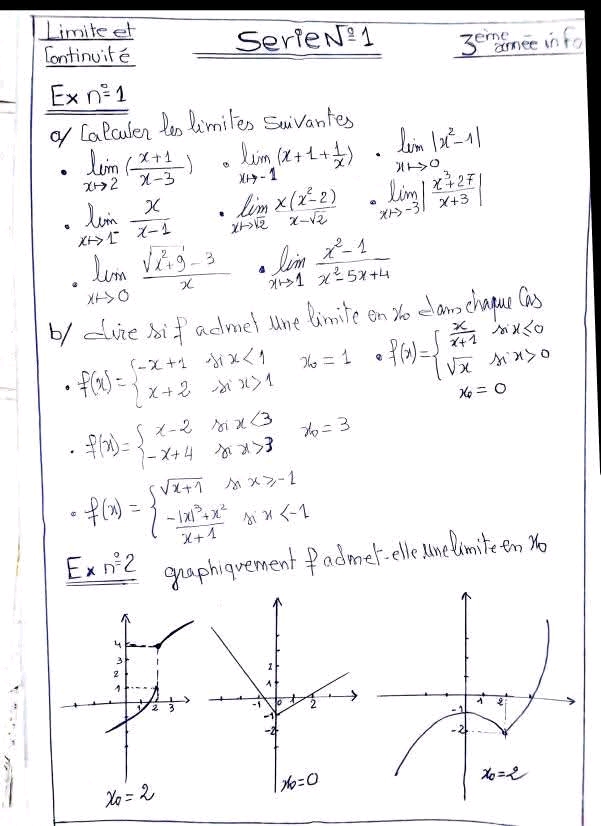 Limite et Continuité
Serie N°1
3ème année info
Ex n°1
a/ Calculer les limites suivantes
• lim x→2 (x+1 / x-3) • lim x→-1 (x+1+1/x) • lim x→0 |x²-1|
• lim x→1⁻ x / x-1 • lim x→√2 x(x²-2) / x-√2 • lim x→-3 |x³+27 / x+3|
• lim x→0 √x²+9 - 3 / x • lim x→1 x²-1 / x²-5x+4
b/ dire si f admet une limite en x₀ dans chaque Cas
• f(x) = { -x+1 si x<1
x+2 si x>1 x₀ = 1
• f(x) = { x / x+1 si x≤0
√x si x>0
x₀ = 0
• f(x) = { x-2 si x<3
-x+4 si x>3 x₀ = 3
• f(x) = { √x+1 si x≥-1
-|x|³+x² / x+1 si x<-1
Ex n°2 graphiquement f admet-elle une limite en x₀
4
3
2
1
1 2 3
x₀ = 2
2
1
-1 0 1 2
-1
-2
x₀ = 0
1 2
-1
-2
x₀ = 2